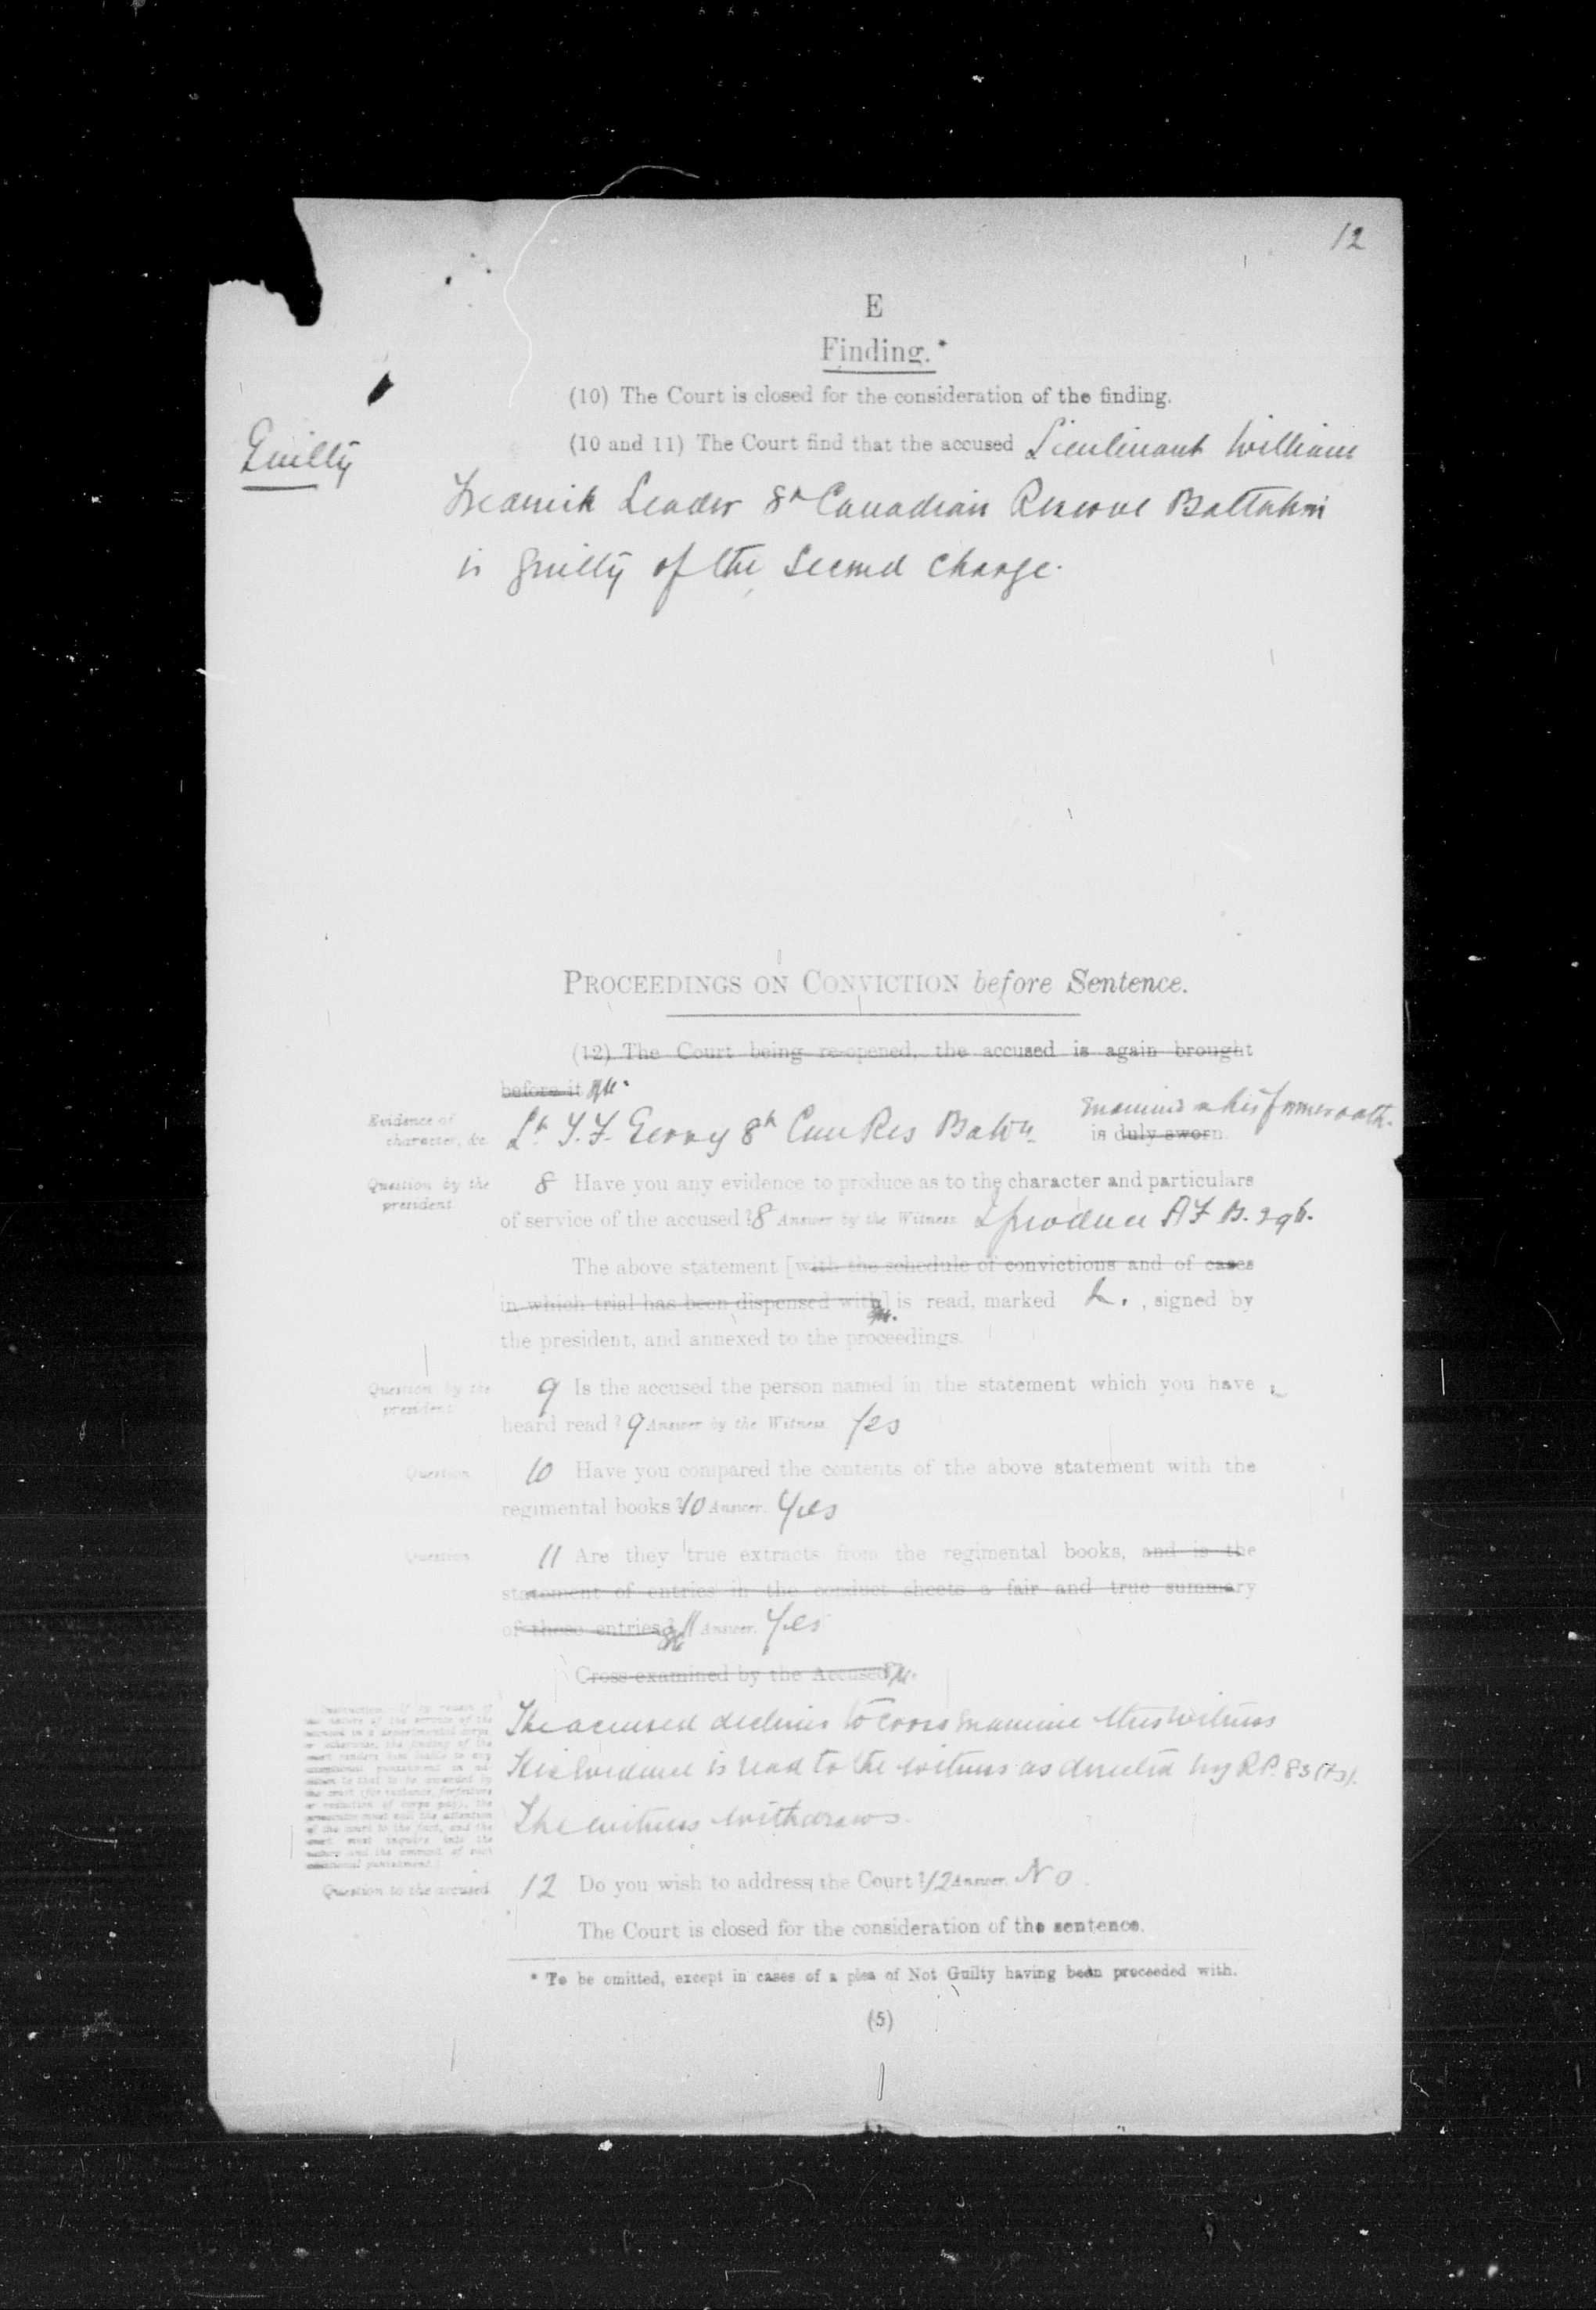 12
E
Finding.*
(10) The Court is closed for the consideration of the finding.
Guilty
(10 and 11) The Court find that the accused Lieutenant William
Frederick Leader 8th Canadian Reserve Battalion
is guilty of the second charge.
PROCEEDINGS ON CONVICTION before Sentence.
(12) The Court being re-opened, the accused is again brought
before it
Evidence of
character, &c.
Examined on his former oath.
Lt. Gerray 8th Can Res Batn is duly sworn.
Question by the
president.
8 Have you any evidence to produce as to the character and particulars
of service of the accused? 8 Answer by the Witness. I produce AF B. 296.
The above statement [with the schedule of convictions and of cases
in which trial has been dispensed with] is read, marked L. , signed by
the president, and annexed to the proceedings.
Question by the
president.
9 Is the accused the person named in the statement which you have
heard read? 9 Answer by the Witness. Yes
Question.
10 Have you compared the contents of the above statement with the
regimental books? 10 Answer. Yes
Question.
11 Are they true extracts from the regimental books, and is the
statement of entries in the conduct sheets a fair and true summary
of those entries? 11 Answer. Yes
Cross-examined by the Accused.
The accused declines to cross examine this witness
His evidence is read to the witness as directed by R.P. 83 (B).
The witness withdraws.
Instruction.—If by reason of
the nature of the service of the
accused in a departmental corps
or otherwise, the finding of the
court renders him liable to any
exceptional punishment in ad-
dition to that to be awarded by
the court (for instance, forfeiture
or reduction of corps pay), the
prosecutor must call the attention
of the court to the fact, and the
court must inquire into the
nature and the amount of such
additional punishment.)
Question to the accused.
12 Do you wish to address the Court? 12 Answer. No.
The Court is closed for the consideration of the sentence.
* To be omitted, except in cases of a plea of Not Guilty having been proceeded with.
(5)